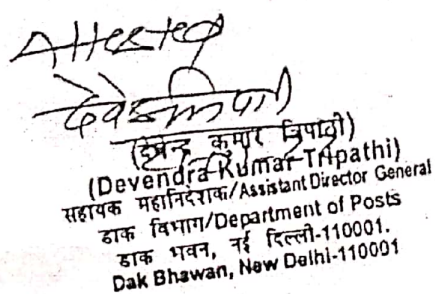 Attested
(देवेन्द्र कुमार त्रिपाठी)
(Devendra Kumar Tripathi)
सहायक महानिदेशक/Assistant Director General
डाक विभाग/Department of Posts
डाक भवन, नई दिल्ली-110001.
Dak Bhawan, New Delhi-110001